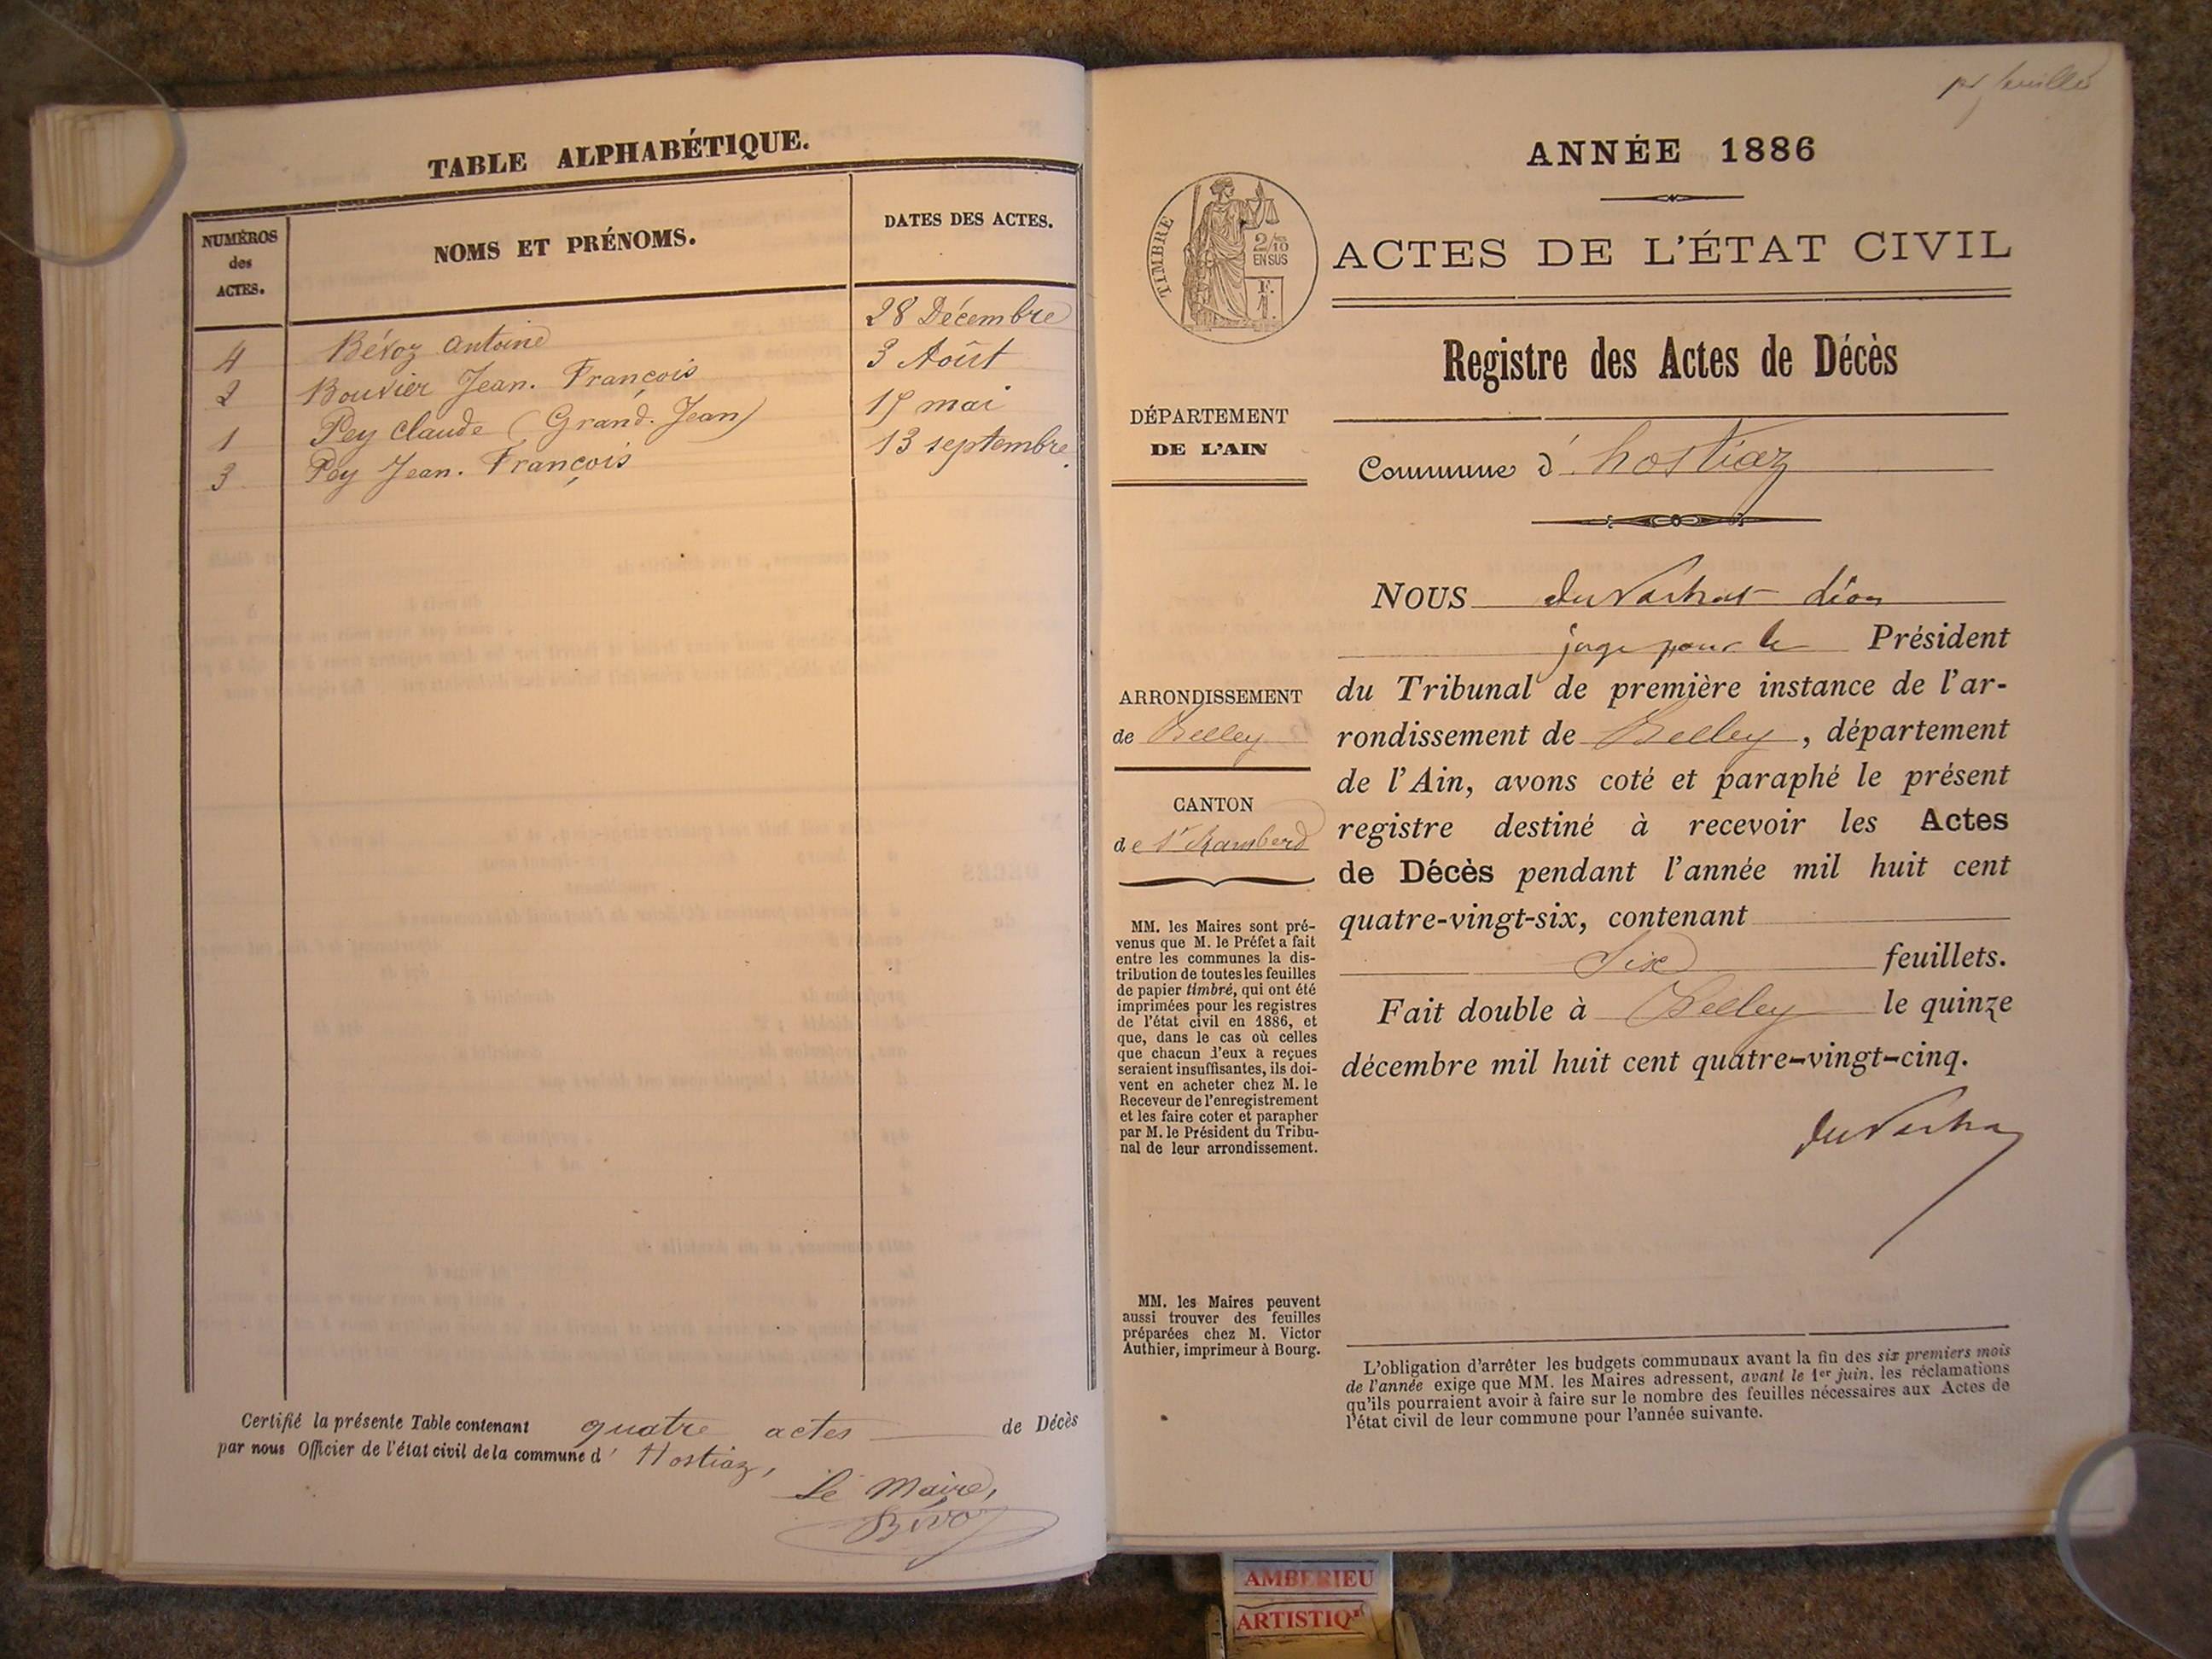 TABLE ALPHABÉTIQUE.
NUMÉROS
des
ACTES.
NOMS ET PRÉNOMS.
DATES DES ACTES.
4 Bévoz Antoine 28 Décembre
2 Bouvier Jean. François 3 Août
1 Pey Claude (Grand. Jean) 15 mai
3 Pey Jean. François 13 septembre.
Certifié la présente Table contenant quatre actes de Décès
par nous Officier de l'état civil de la commune d' Hostiaz,
Le Maire,
Bévoz
ANNÉE 1886
TIMBRE
2/10
EN SUS
F.
ACTES DE L'ÉTAT CIVIL
Registre des Actes de Décès
DÉPARTEMENT
DE L'AIN
Commune d' hostiaz
NOUS Léon
juge pour le Président
du Tribunal de première instance de l'ar-
rondissement de Belley, département
de l'Ain, avons coté et paraphé le présent
registre destiné à recevoir les Actes
de Décès pendant l'année mil huit cent
quatre-vingt-six, contenant
Six feuillets.
Fait double à Belley le quinze
décembre mil huit cent quatre-vingt-cinq.
ARRONDISSEMENT
de Belley
CANTON
de St Rambert
MM. les Maires sont pré-
venus que M. le Préfet a fait
entre les communes la dis-
tribution de toutes les feuilles
de papier timbré, qui ont été
imprimées pour les registres
de l'état civil en 1886, et
que, dans le cas où celles
que chacun d'eux a reçues
seraient insuffisantes, ils doi-
vent en acheter chez M. le
Receveur de l'enregistrement
et les faire coter et parapher
par M. le Président du Tribu-
nal de leur arrondissement.
MM. les Maires peuvent
aussi trouver des feuilles
préparées chez M. Victor
Authier, imprimeur à Bourg.
L'obligation d'arrêter les budgets communaux avant la fin des six premiers mois
de l'année exige que MM. les Maires adressent, avant le 1er juin, les réclamations
qu'ils pourraient avoir à faire sur le nombre des feuilles nécessaires aux Actes de
l'état civil de leur commune pour l'année suivante.
AMBERIEU
ARTISTIQ